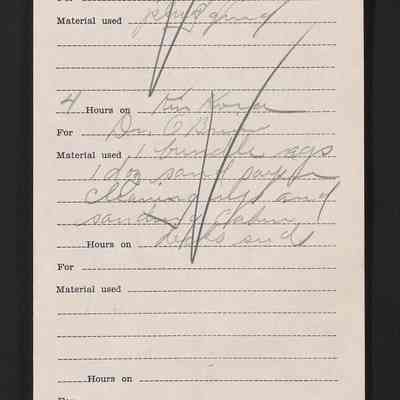 Material used
4 Hours on
For Dr. O'Brien
Material used 1 bundle rags
1 doz sand paper
cleaning up and
sanding cabin
Hours on
For
Material used
Hours on
For